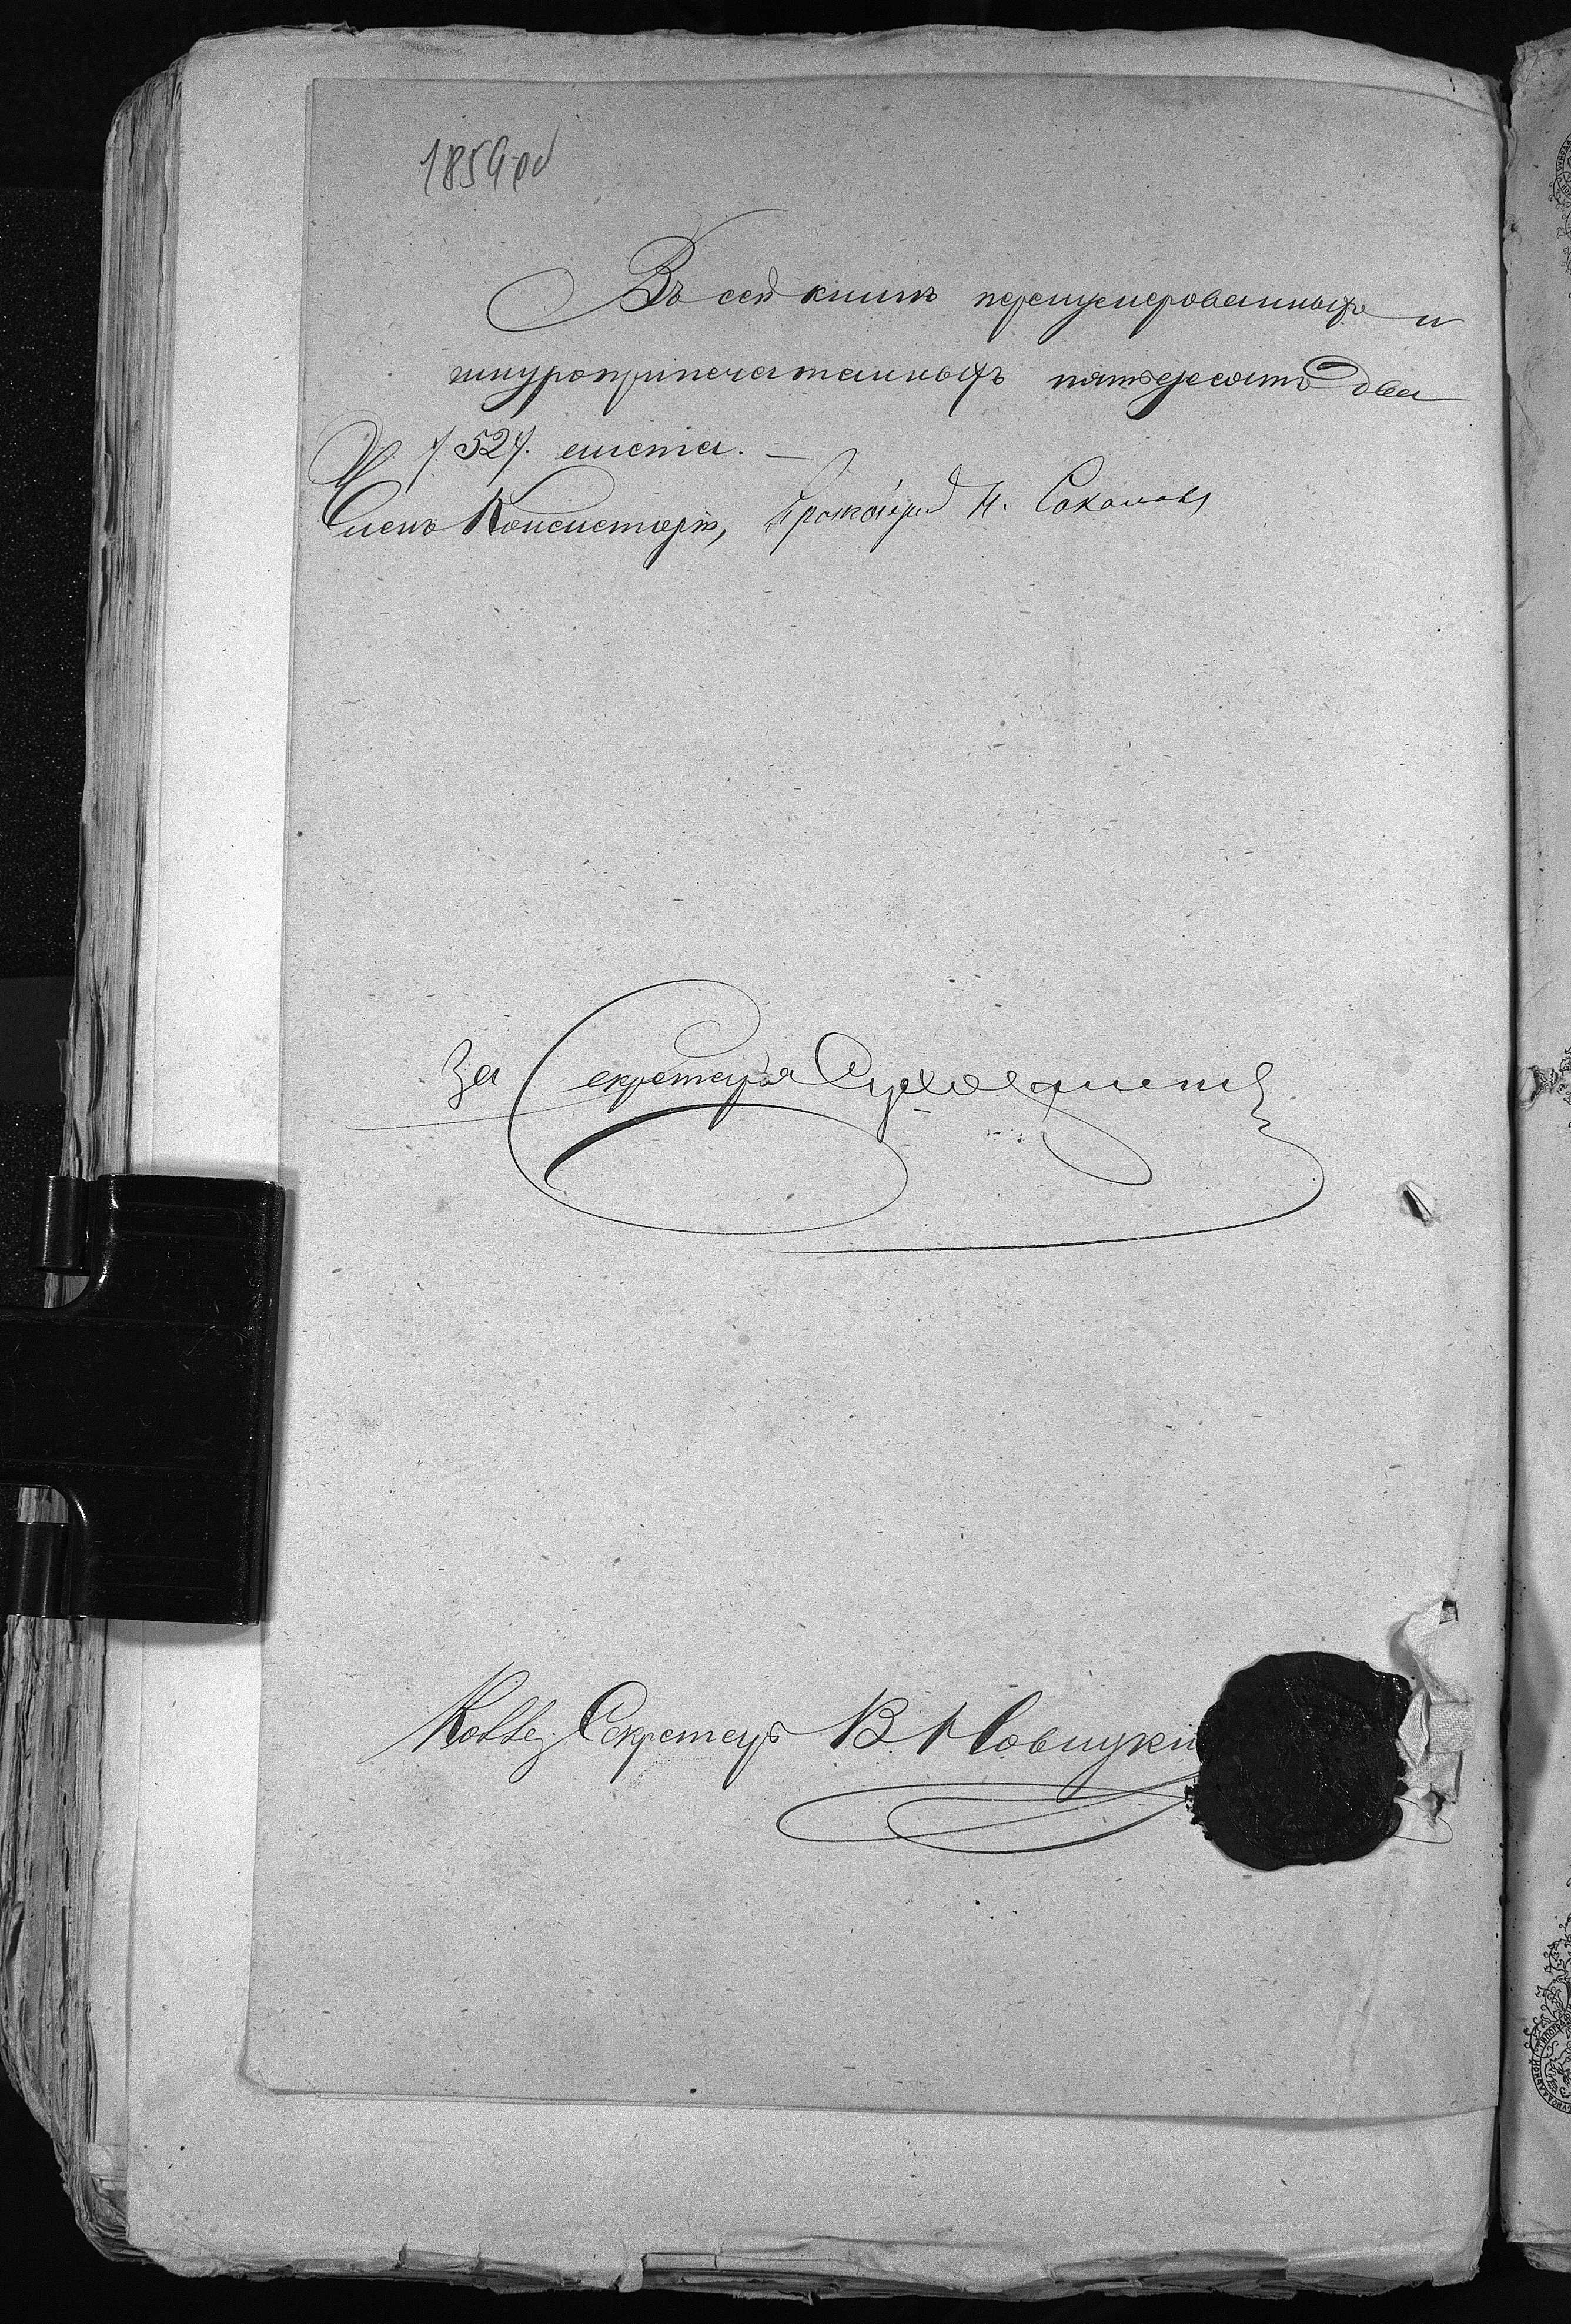 1859 об
Въ сей книгѣ перенумерованныхъ и
шнуроприпечатанныхъ пятьдесятъ два
/:52:/. листа. —
Членъ Консисторіи, Протоіерей Н. Соколовъ
За Секретаря
Коллеж Секретарь В Новицкій